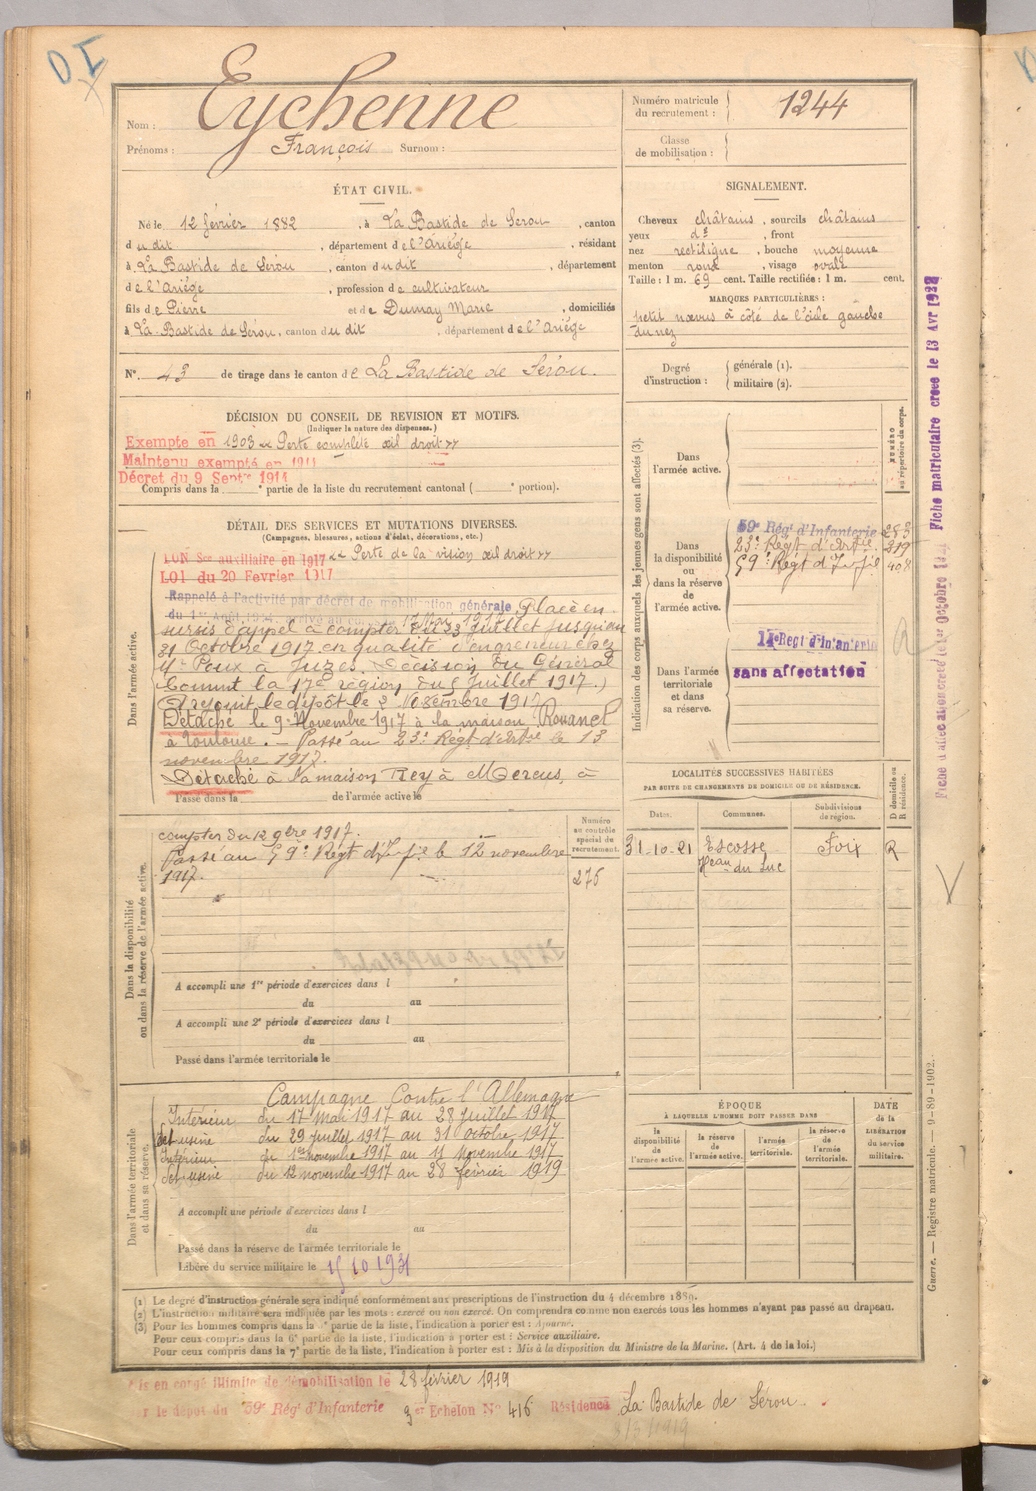 D I
Eychenne
Nom :
Prénoms : François Surnom :
Numéro matricule du recrutement : 1244
Classe de mobilisation :
ÉTAT CIVIL.
Né le 12 février 1882, à La Bastide de Serou, canton
du dit, département de l'Ariège, résidant
à La Bastide de Sérou, canton du dit, département
de l'Ariège, profession de cultivateur
fils de Pierre et de Dumay Marie, domiciliés
à La Bastide de Serou, canton du dit, département de l'Ariège
N° 43 de tirage dans le canton de La Bastide de Sérou.
SIGNALEMENT.
Cheveux châtains, sourcils châtains
yeux ds, front
nez rectiligne, bouche moyenne
menton rond, visage ovale
Taille : 1 m. 69 cent. Taille rectifiée : 1 m. cent.
MARQUES PARTICULIÈRES :
petit nœvus à côté de l'aile gauche
du nez
Degré d'instruction : générale (1). militaire (2).
DÉCISION DU CONSEIL DE REVISION ET MOTIFS.
(Indiquer la nature des dispenses.)
Exempté en 1903 « Perte complète œil droit »
Maintenu exempté en 1914
Décret du 9 Septre 1914
Compris dans la e partie de la liste du recrutement cantonal ( e portion).
DÉTAIL DES SERVICES ET MUTATIONS DIVERSES.
(Campagnes, blessures, actions d'éclat, décorations, etc.)
Dans l'armée active.
BON Sce auxiliaire en 1917 « Perte de la vision œil droit »
LOI du 20 Fevrier 1917
Rappelé à l'activité par décret de mobilisation générale Placé en
sursis d'appel à compter du 23 juillet jusqu'au
31 Octobre 1917 en qualité d'engreneur chez
Mr Poux à Juzes. Décision du Général
Commt la 17e région du 6 Juillet 1917.
A rejoint le dépôt le 2 Novembre 1917
Détaché le 9 Novembre 1917 à la maison Rouanet
à Toulouse. — Passé au 23e Régt d'Artie le 13
novembre 1917.
Détaché à la maison Rey à Mercus, à
Passé dans la de l'armée active le
Dans la disponibilité ou dans la réserve de l'armée active.
compter du 12 9bre 1917.
Passé au 59e Régt d'Infie le 12 novembre
1917.
Numéro au contrôle spécial du recrutement.
276
A accompli une 1re période d'exercices dans l
du au
A accompli une 2e période d'exercices dans l
du au
Passé dans l'armée territoriale le
Dans l'armée territoriale et dans sa réserve.
Campagne Contre l'Allemagne
Intérieur du 17 mai 1917 au 28 juillet 1917
det usine du 29 juillet 1917 au 31 octobre 1917
Intérieur du 1er novembre 1917 au 11 Novembre 1917
det usine du 12 novembre 1917 au 28 février 1919
A accompli une période d'exercices dans l
du au
Passé dans la réserve de l'armée territoriale le
Libéré du service militaire le 15 10 1931
Indication des corps auxquels les jeunes gens sont affectés (3).
NUMÉRO au répertoire du corps.
Dans l'armée active.
Dans la disponibilité ou dans la réserve de l'armée active.
59e Régt d'Infanterie 253
23e Régt d'Artie. 319
59e Régt d'Infie 408
Dans l'armée territoriale et dans sa réserve.
14e Regt d'Infanterie
sans affectation
LOCALITÉS SUCCESSIVES HABITÉES
PAR SUITE DE CHANGEMENTS DE DOMICILE OU DE RÉSIDENCE.
Dates. Communes. Subdivisions de région. D domicile ou R résidence.
31-10-21 Escosse Foix R
Heau du Luc
ÉPOQUE
À LAQUELLE L'HOMME DOIT PASSER DANS
la disponibilité de l'armée active. la réserve de l'armée active. l'armée territoriale. la réserve de l'armée territoriale.
DATE de la LIBÉRATION du service militaire.
Fiche matriculaire creee le 13 Avr 1922
Guerre. — Registre matricule. — 9-89-1902.
(1) Le degré d'instruction générale sera indiqué conformément aux prescriptions de l'instruction du 4 décembre 1889.
(2) L'instruction militaire sera indiquée par les mots : exercé ou non exercé. On comprendra comme non exercés tous les hommes n'ayant pas passé au drapeau.
(3) Pour les hommes compris dans la 5e partie de la liste, l'indication à porter est : Ajourné.
Pour ceux compris dans la 6e partie de la liste, l'indication à porter est : Service auxiliaire.
Pour ceux compris dans la 7e partie de la liste, l'indication à porter est : Mis à la disposition du Ministre de la Marine. (Art. 4 de la loi.)
Mis en congé illimité de démobilisation le 28 février 1919
par le dépot du 59e Régt d'Infanterie 3e Echelon N° 416 Résidence La Bastide de Sérou.